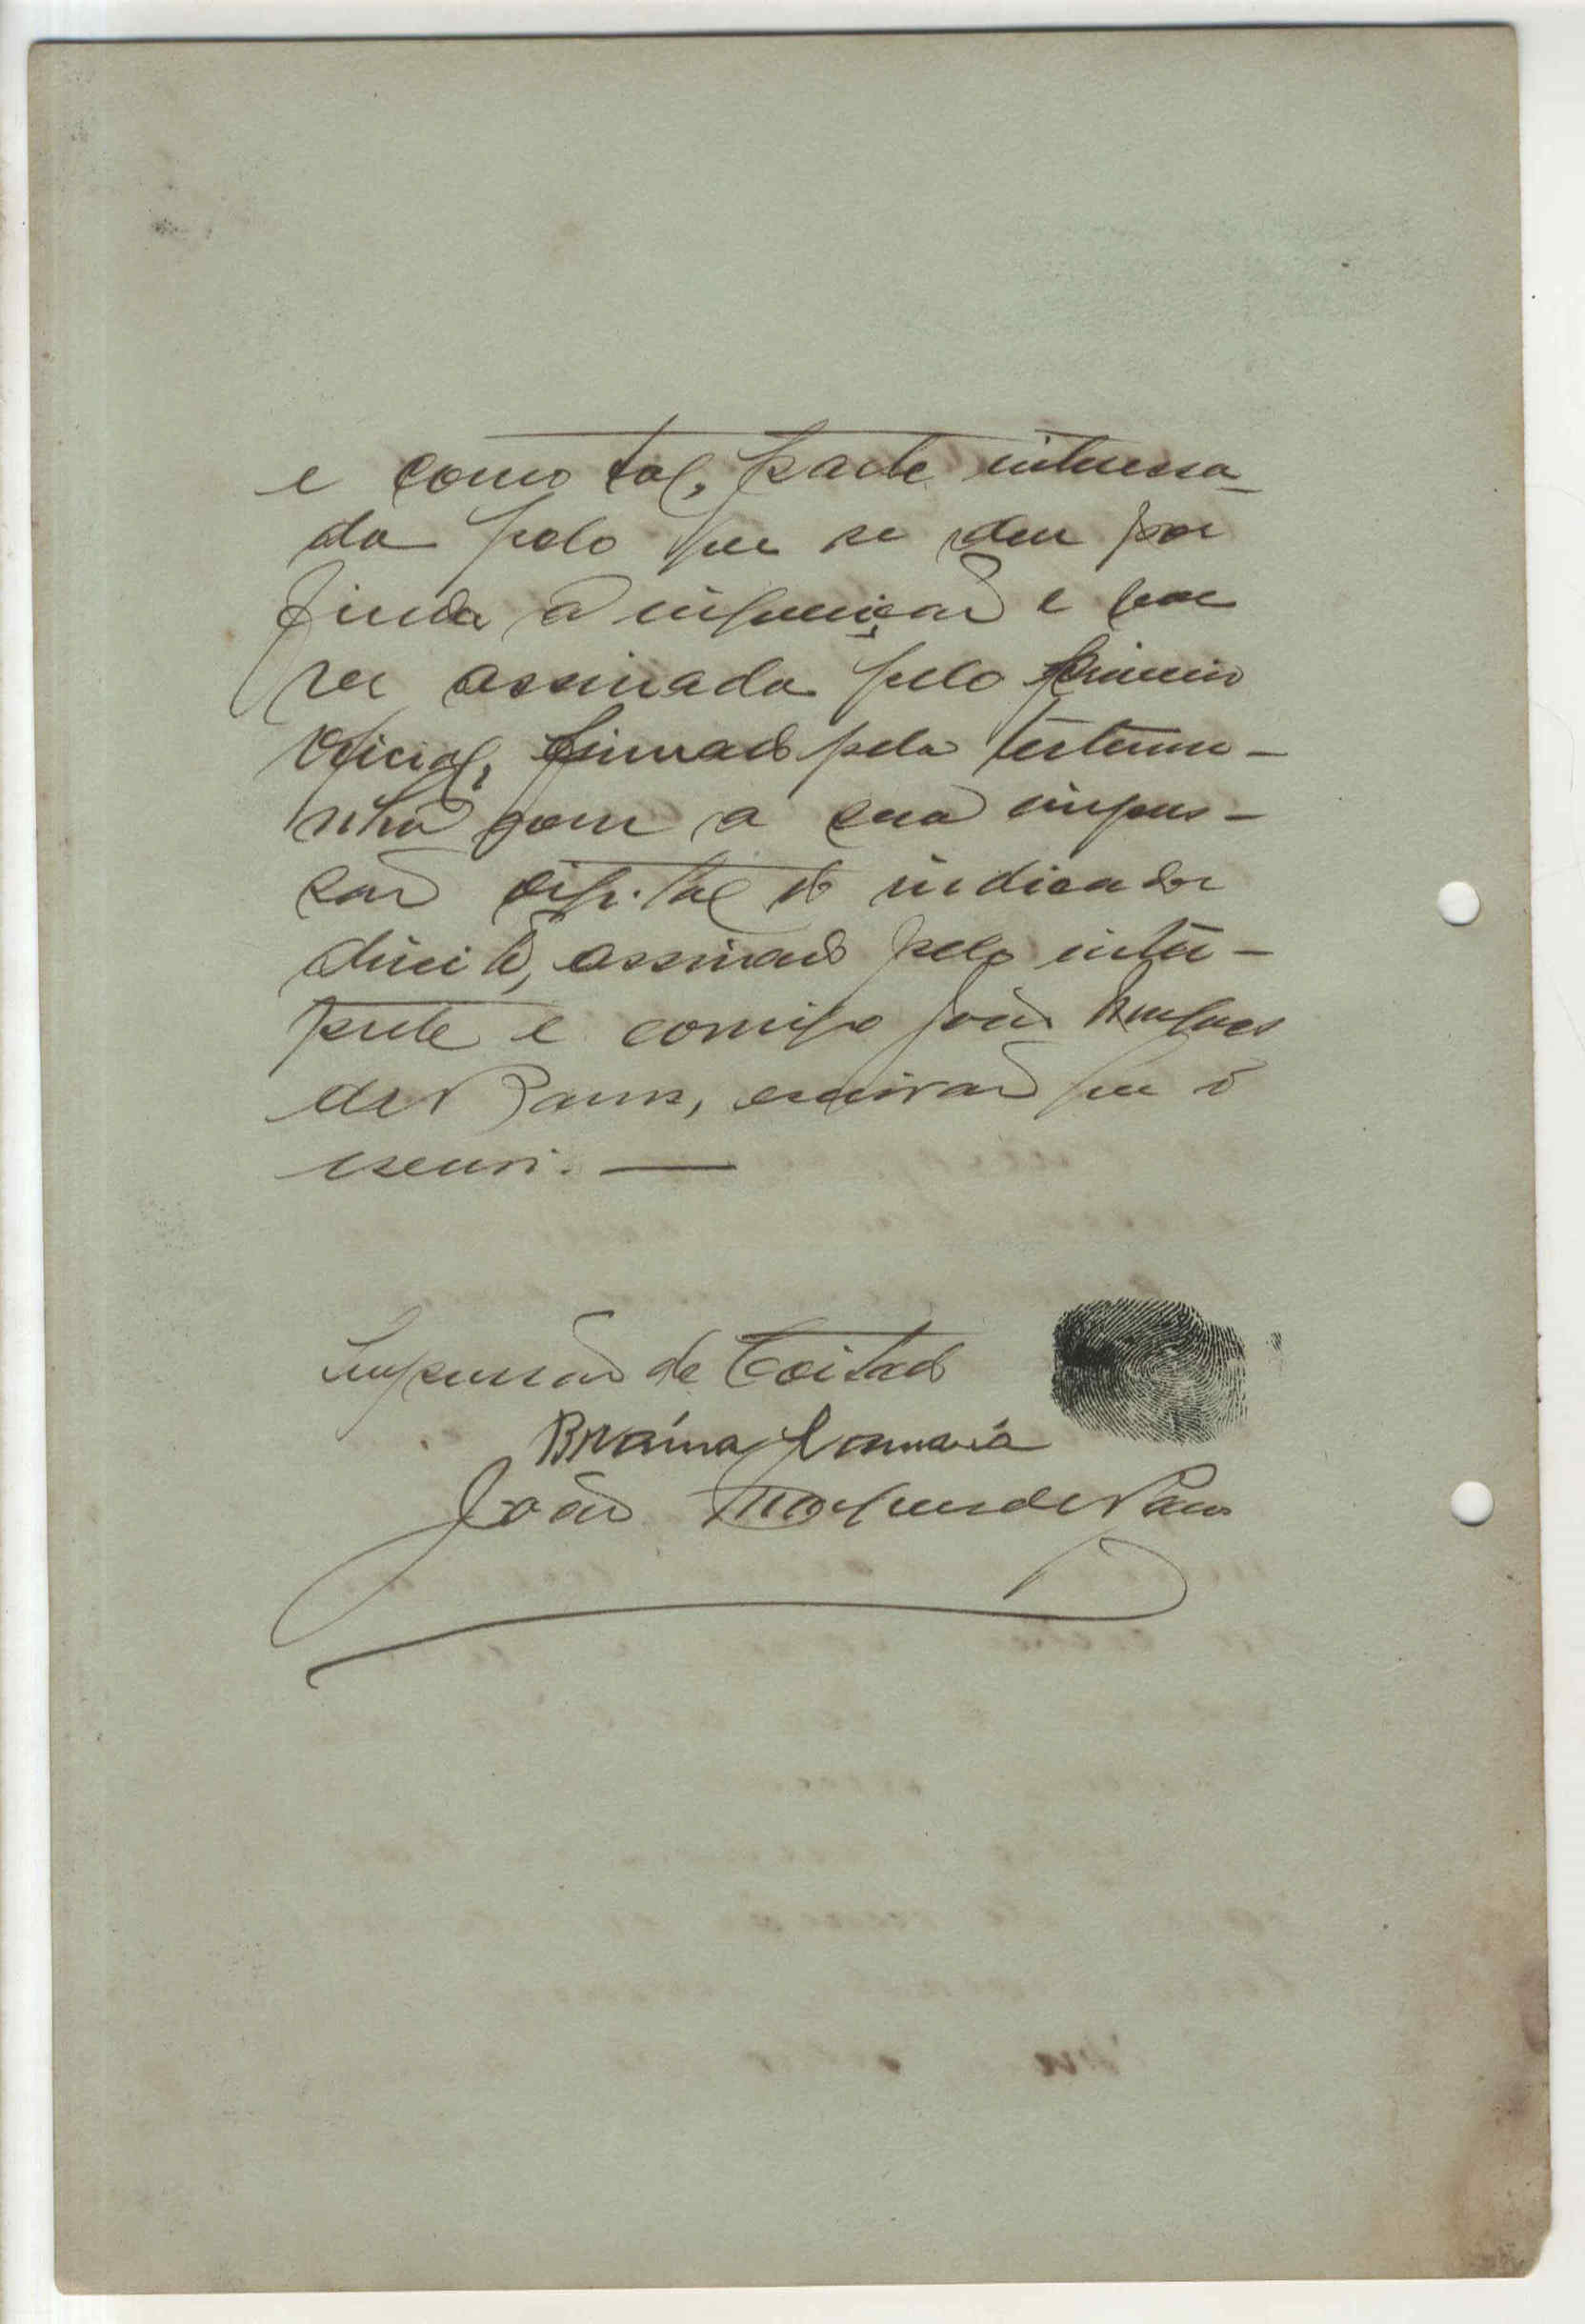 e como tal, parte interessa-
da pelo que se deu por
finda a inquirição e por
ser assinada pelo primeiro
oficial, firmado pela testemu-
nha com a sua impres-
são digital do indicador
direito, assinado pelo intér-
prete e comigo João Marques
de Barros, escrivão que o
escrevi. —
Impressão de Coitado
Bráima Camará
João Marques de Barros